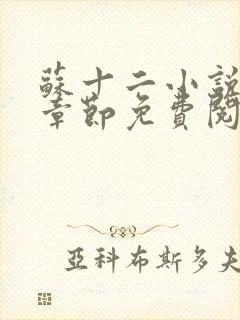 蘇十二小說
章節免費閱
亞科布斯多夫